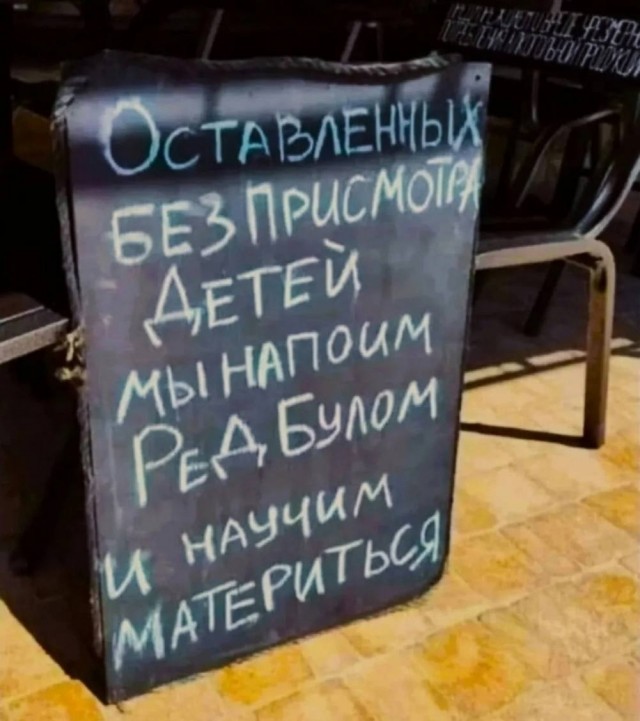 Оставленных
без присмотра
детей
мы напоим
Ред Булом
и научим
материться